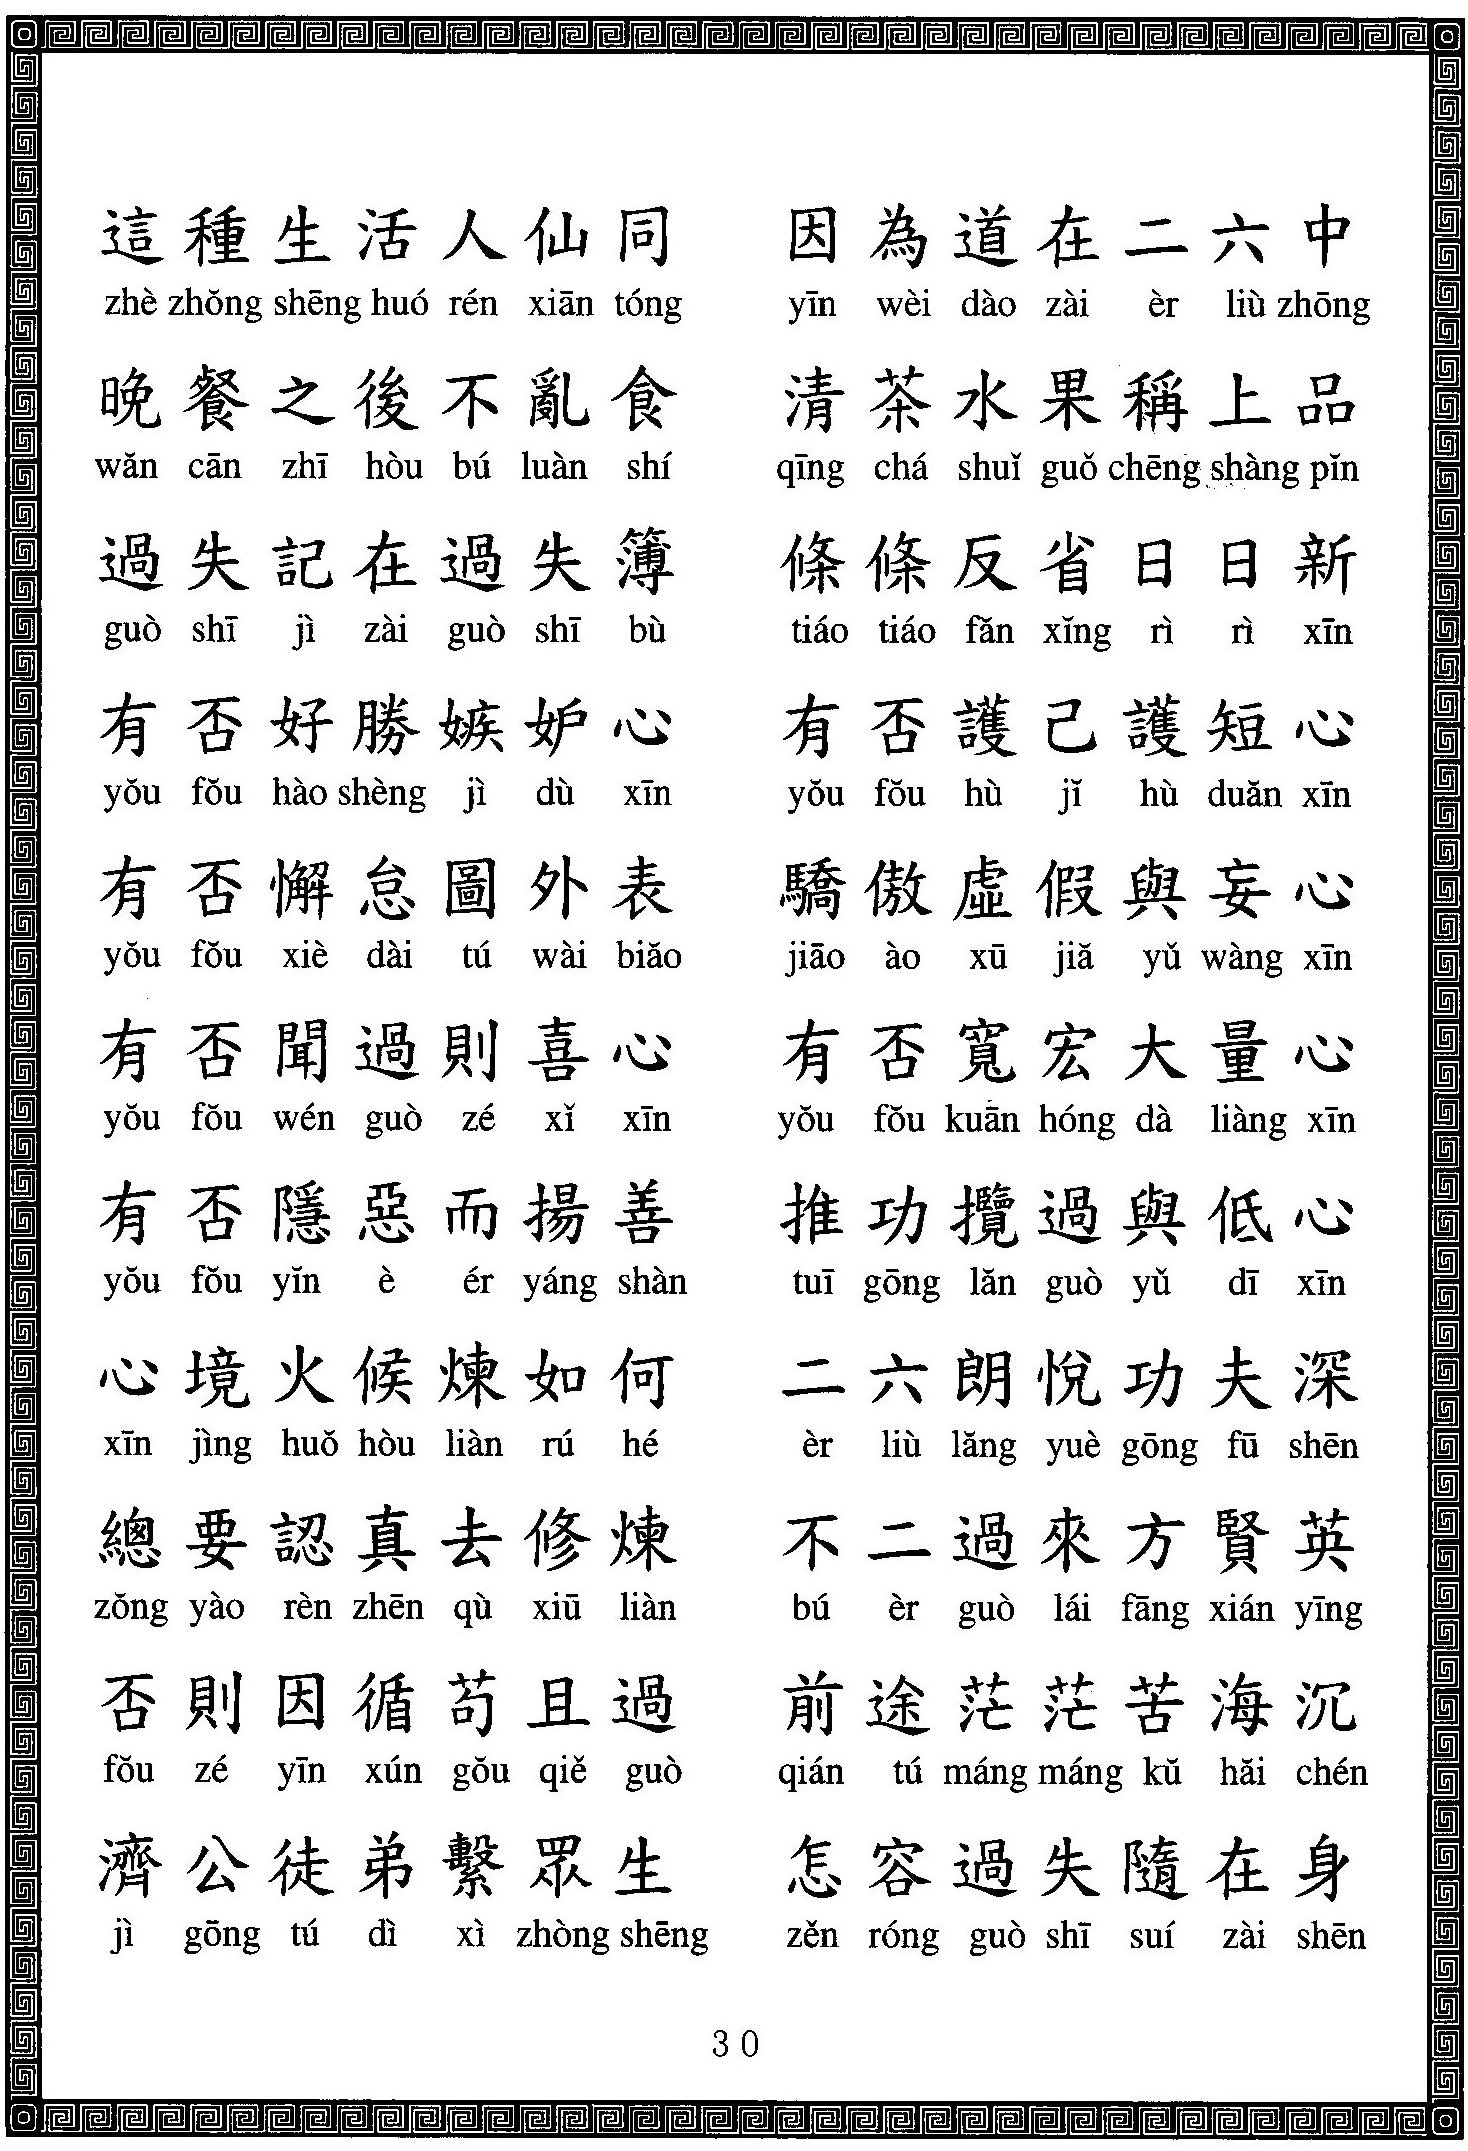 這種生活人仙同 因為道在二六中
zhè zhǒng shēng huó rén xiān tóng yīn wèi dào zài èr liù zhōng
晚餐之後不亂食 清茶水果稱上品
wǎn cān zhī hòu bú luàn shí qīng chá shuǐ guǒ chēng shàng pǐn
過失記在過失簿 條條反省日日新
guò shī jì zài guò shī bù tiáo tiáo fǎn xǐng rì rì xīn
有否好勝嫉妒心 有否護己護短心
yǒu fǒu hào shèng jì dù xīn yǒu fǒu hù jǐ hù duǎn xīn
有否懈怠圖外表 驕傲虛假與妄心
yǒu fǒu xiè dài tú wài biǎo jiāo ào xū jiǎ yǔ wàng xīn
有否聞過則喜心 有否寬宏大量心
yǒu fǒu wén guò zé xǐ xīn yǒu fǒu kuān hóng dà liàng xīn
有否隱惡而揚善 推功攬過與低心
yǒu fǒu yǐn è ér yáng shàn tuī gōng lǎn guò yǔ dī xīn
心境火候煉如何 二六朗悅功夫深
xīn jìng huǒ hòu liàn rú hé èr liù lǎng yuè gōng fū shēn
總要認真去修煉 不二過來方賢英
zǒng yào rèn zhēn qù xiū liàn bú èr guò lái fāng xián yīng
否則因循苟且過 前途茫茫苦海沉
fǒu zé yīn xún gǒu qiě guò qián tú máng máng kǔ hǎi chén
濟公徒弟繫眾生 怎容過失隨在身
jì gōng tú dì xì zhòng shēng zěn róng guò shī suí zài shēn
30